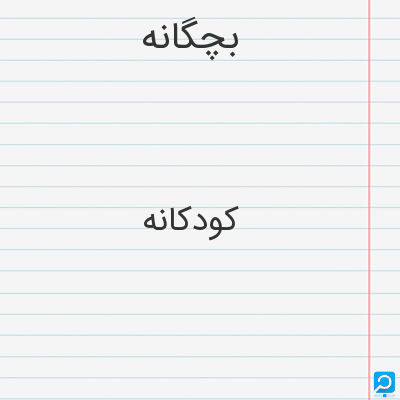 بچگانه
کودکانه